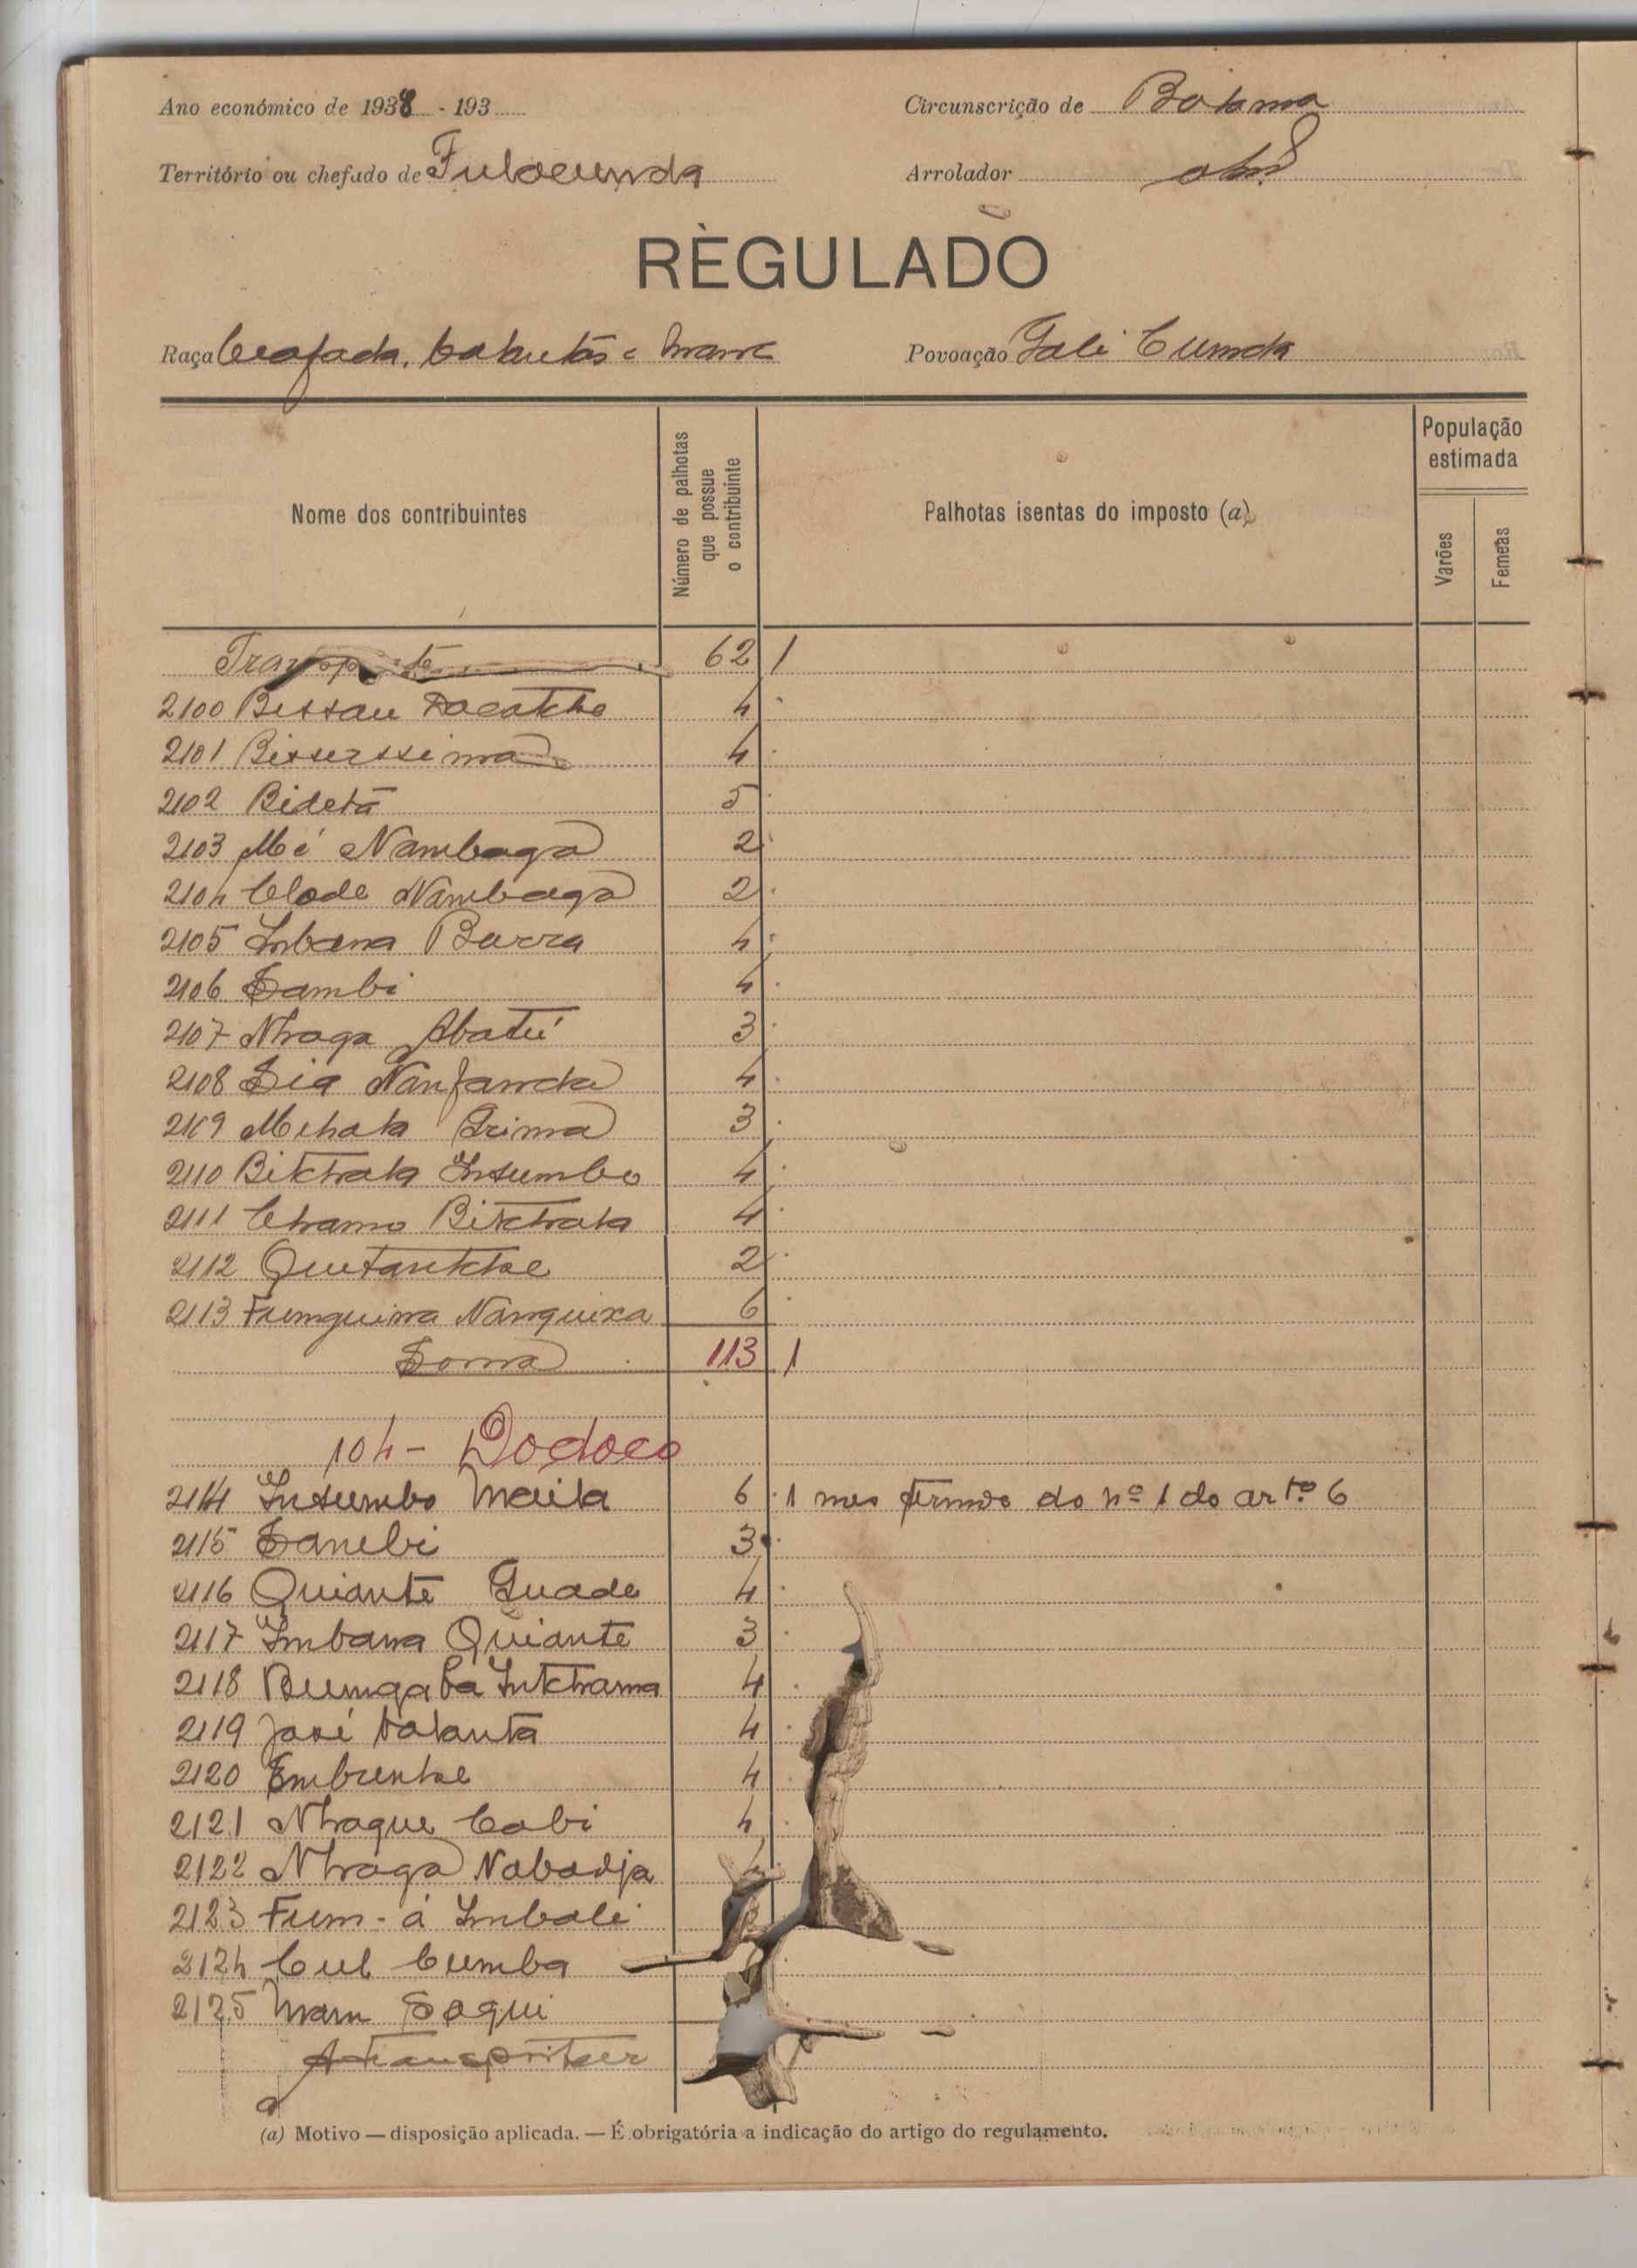 Ano económico de 1938 - 193
Circunscrição de Bolama
Território ou chefado de Fulacunda
Arrolador
RÈGULADO
Raça Beafada, balantas e mane
Povoação Gali Cunda
Nome dos contribuintes
Número de palhotas que possue o contribuinte
Palhotas isentas do imposto (a)
População estimada
Varões
Femeas
Transporte 62 1
2100 Bissau 4
2101 Bisserssima 4
2102 Bidetá 5
2103 Mé Nambaga 2
2104 Clode Nambaga 2
2105 Imbana Burra 4
2106 Sambi 4
2107 Nhaga Abatú 3
2108 Sia Nanfanda 4
2109 Mehata Grima 3
2110 Bitchata Insumbo 4
2111 Chamo Bitchata 4
2112 Quetantche 2
2113 Funguina Nanquixa 6
Soma 113 1
104 - Dodoco
2114 Insumbo Maila 6 1 nos termos do nº 1 do artº 6
2115 Sambi 3
2116 Quiante Guade 4
2117 Imbana Quiante 3
2118 Bumgaba Intchama 4
2119 José balanta 4
2120 Embuntse 4
2121 Nhaque Cabi 4
2122 Nhaga Nabadja
2123 Fum-á Imbali
2124 Cul Cumba
2125 Mam Saqui
A transportar
(a) Motivo — disposição aplicada. — É obrigatória a indicação do artigo do regulamento.